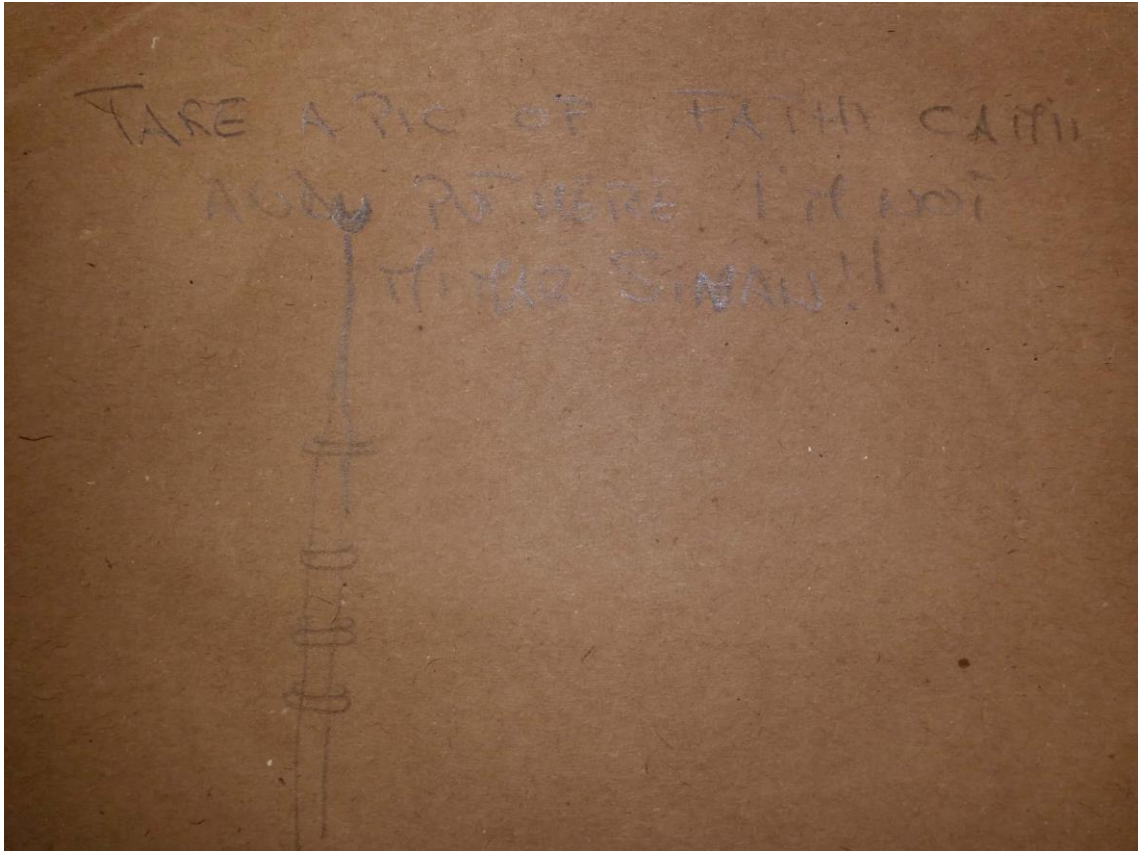 TAKE A PIC OF FATIHI CAMII
PUT HERE I'M NOT
MIMAR SINAN!!